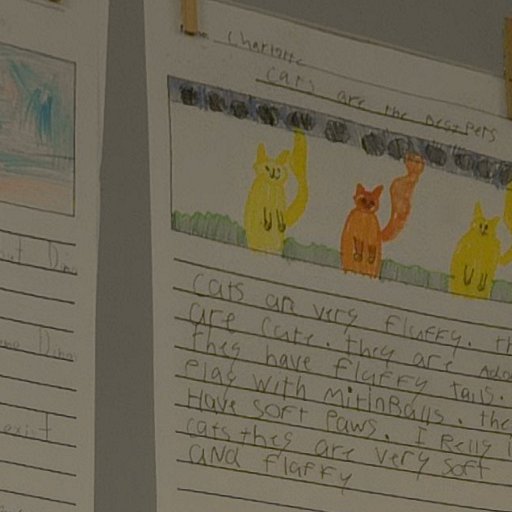 Charlotte
cats are the best pets
cats are very fluffy. th
are cute. they are Ado
they have fluffy tails.
Play with mitinBalls. the
Have soft Paws. I Relly l
cats they are very soft
and flaffy
out Dino
Dino
exist